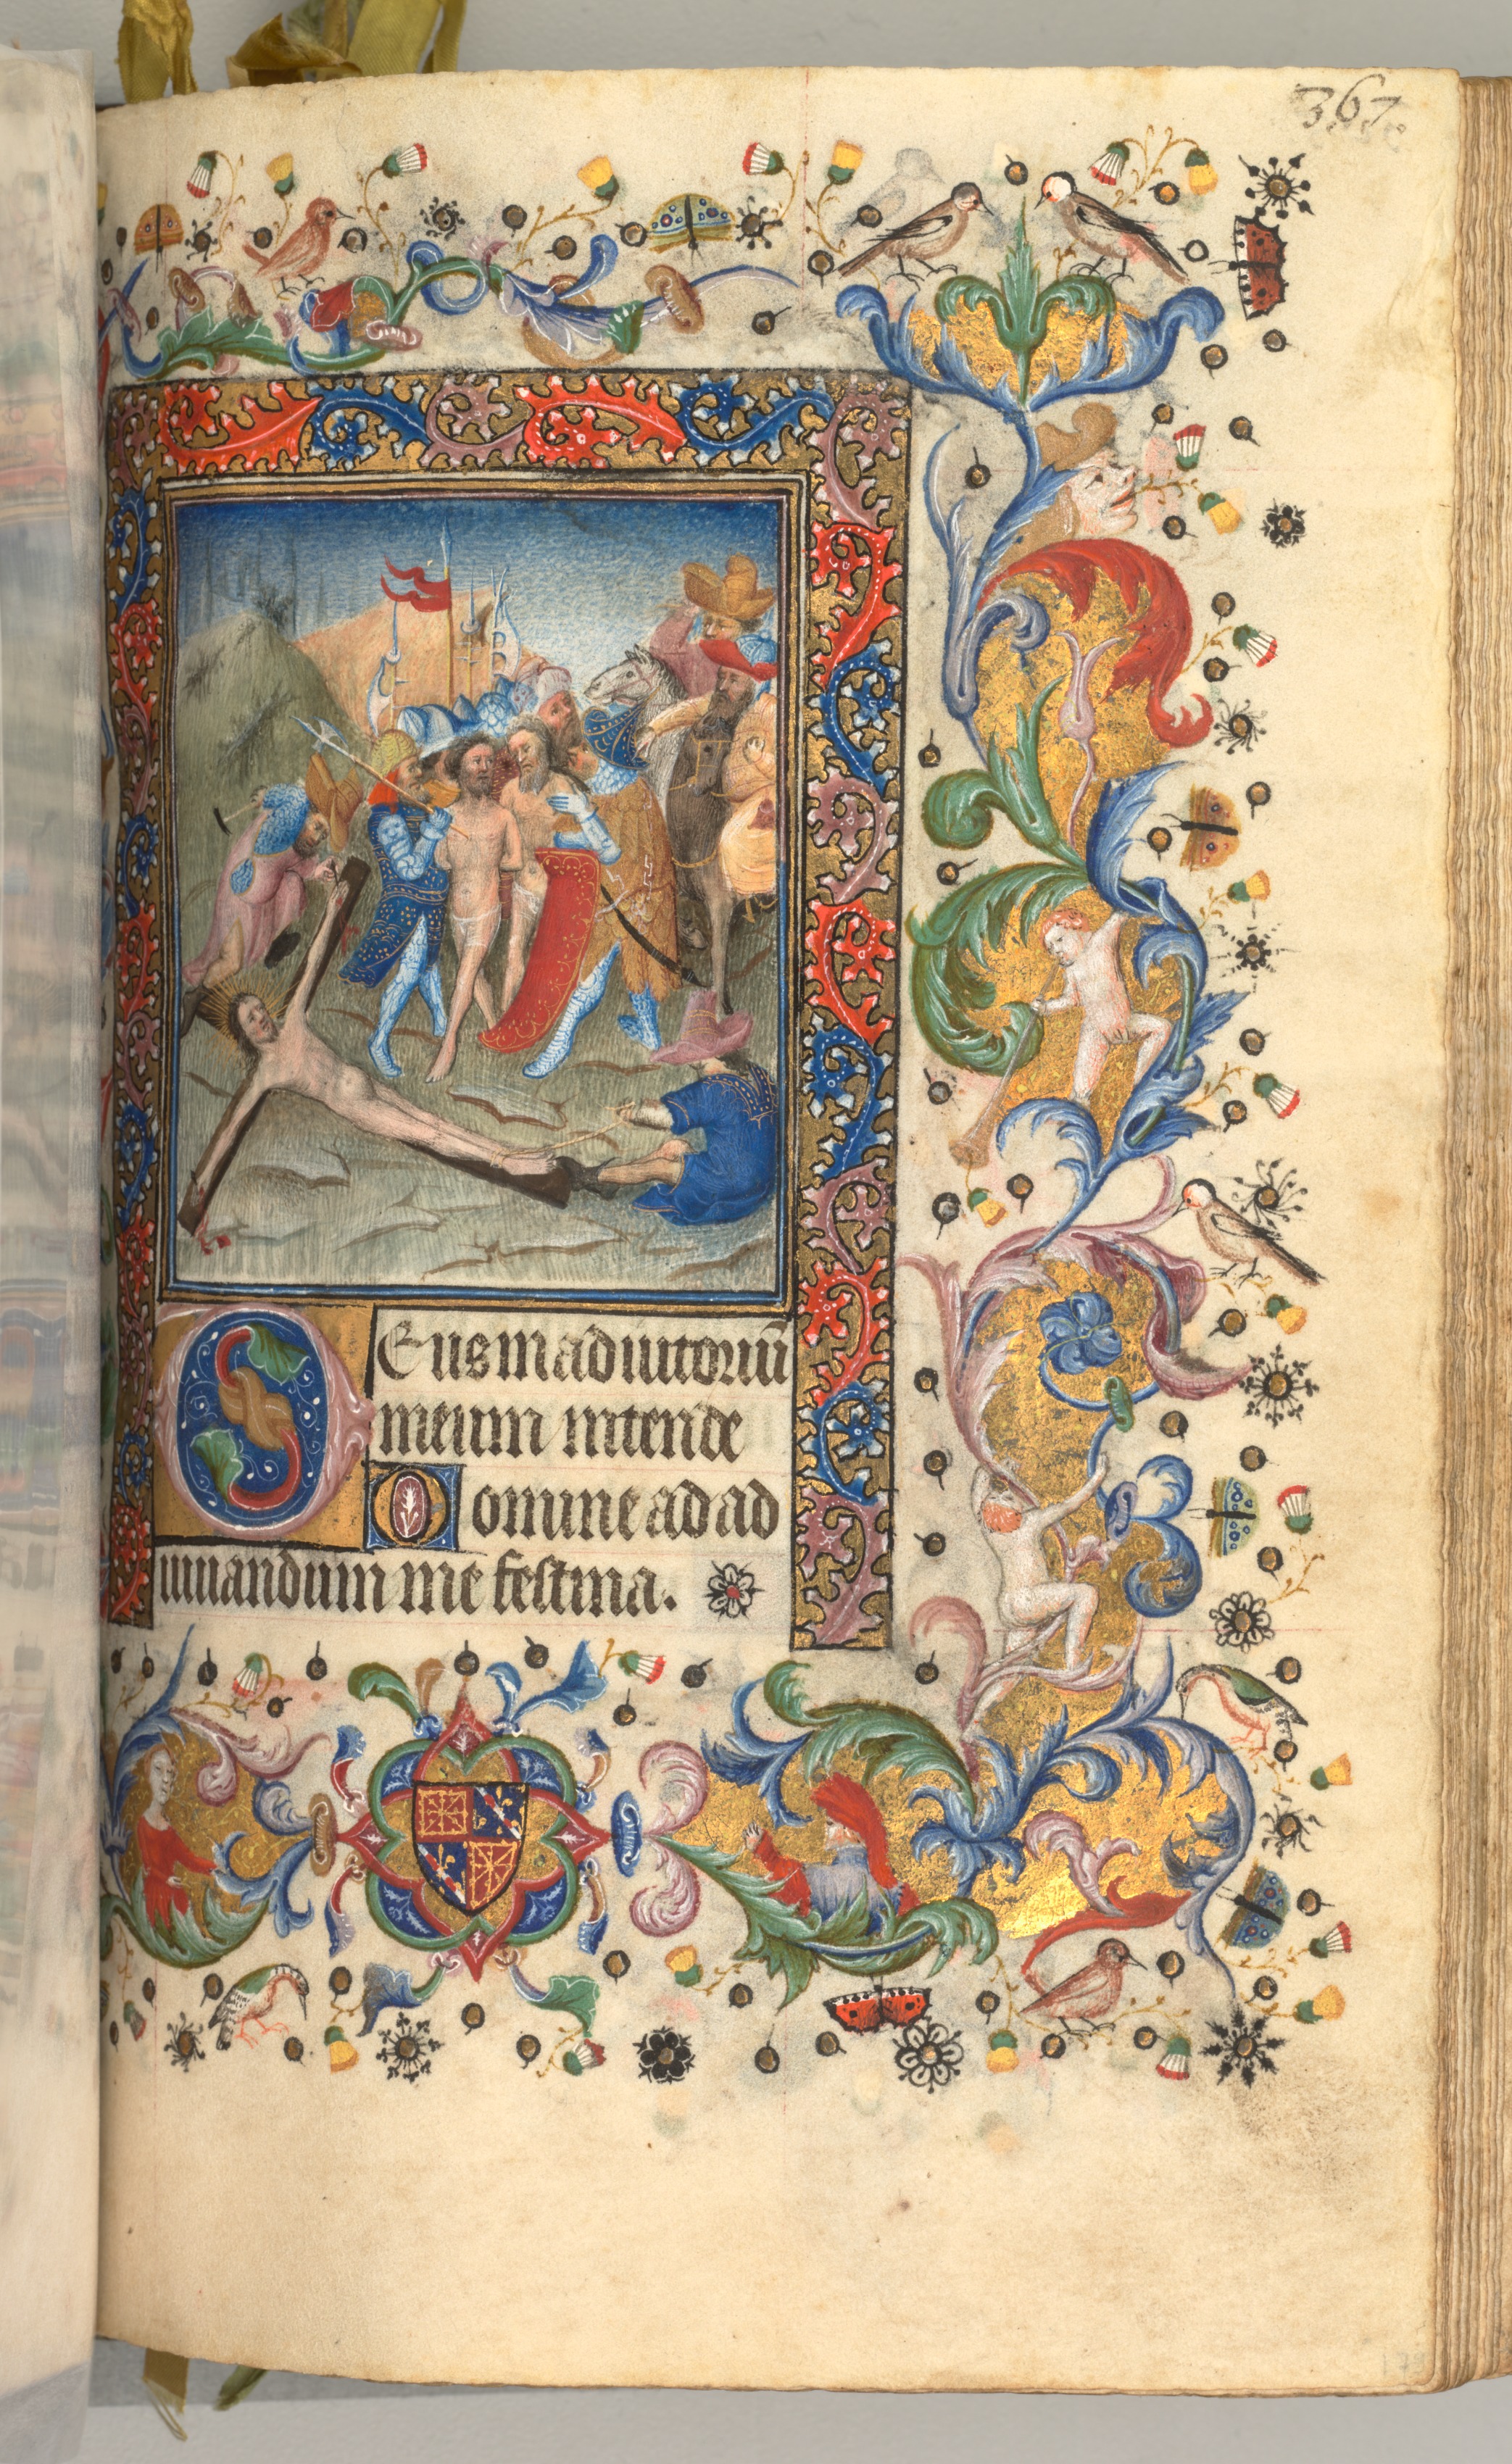 367
Eus in adiutoriū
meum intende
Domine ad ad
iuuandum me festina.